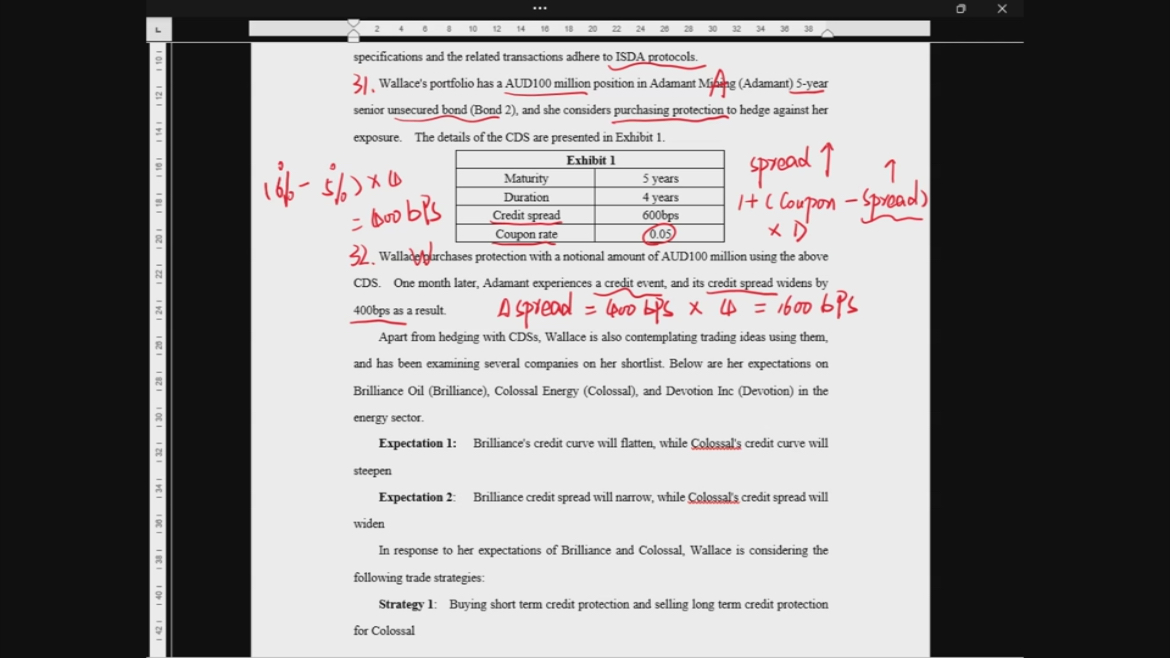 specifications and the related transactions adhere to ISDA protocols.
31. Wallace's portfolio has a AUD100 million position in Adamant Mining (Adamant) 5-year
A
senior unsecured bond (Bond 2), and she considers purchasing protection to hedge against her
exposure. The details of the CDS are presented in Exhibit 1.
Exhibit 1
Maturity 5 years
Duration 4 years
Credit spread 600bps
Coupon rate 0.05
(6% - 5%) × 4
= 400 bps
spread ↑
↑
1 + (Coupon - spread)
× D
32. Wallace purchases protection with a notional amount of AUD100 million using the above
W
CDS. One month later, Adamant experiences a credit event, and its credit spread widens by
400bps as a result.
Δ spread = 400 bps × 4 = 1600 bps
Apart from hedging with CDSs, Wallace is also contemplating trading ideas using them,
and has been examining several companies on her shortlist. Below are her expectations on
Brilliance Oil (Brilliance), Colossal Energy (Colossal), and Devotion Inc (Devotion) in the
energy sector.
Expectation 1: Brilliance's credit curve will flatten, while Colossal's credit curve will
steepen
Expectation 2: Brilliance credit spread will narrow, while Colossal's credit spread will
widen
In response to her expectations of Brilliance and Colossal, Wallace is considering the
following trade strategies:
Strategy 1: Buying short term credit protection and selling long term credit protection
for Colossal